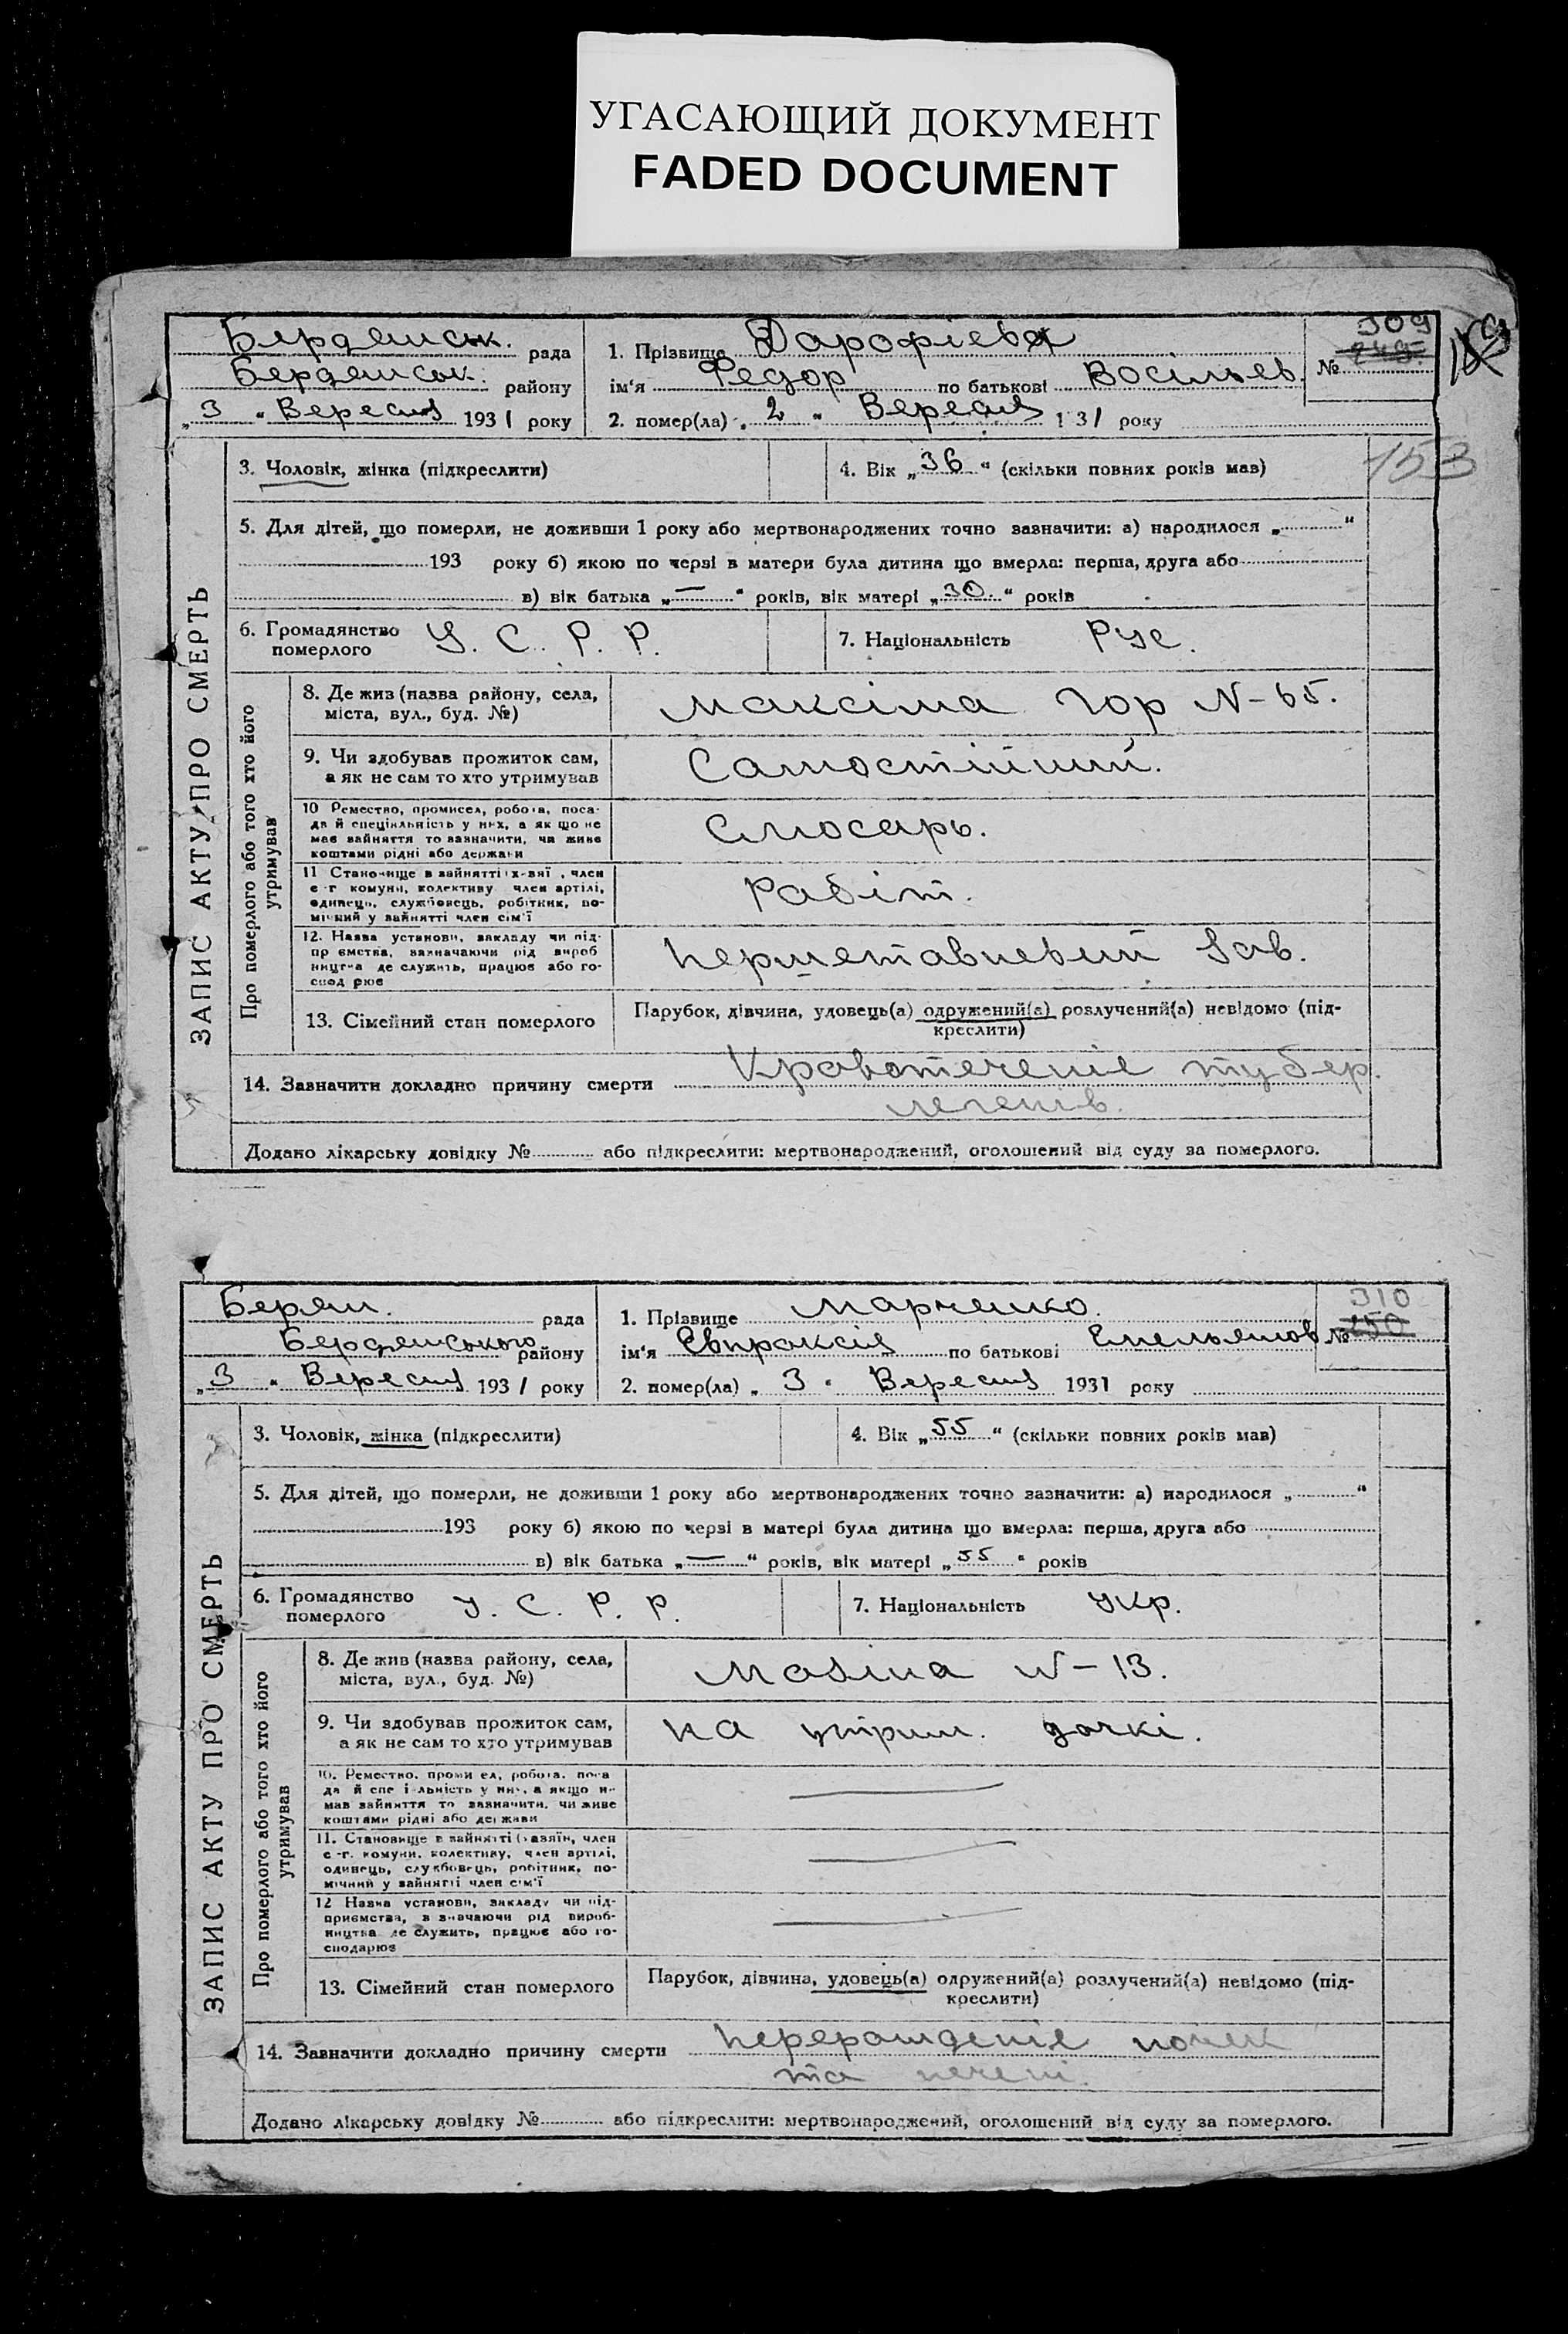 УГАСАЮЩИЙ ДОКУМЕНТ
FADED DOCUMENT
Бердянськ. рада
Бердянськ. району
„3“ Вересня 1931 року
1. Прізвище Дарофієва
ім'я Федор по батькові Восільев.
2. помер(ла) „2“ Вересня 1 31 року
309
249
№
153
ЗАПИС АКТУ ПРО СМЕРТЬ
3. Чоловік, жінка (підкреслити)
4. Вік „36“ (скільки повних років мав)
5. Для дітей, що померли, не доживши 1 року або мертвонароджених точно зазначити: а) народилося „ “
193 року б) якою по черзі в матери була дитина що вмерла: перша, друга або
в) вік батька „—“ років, вік матері „30.“ років
6. Громадянство
померлого
У. С. Р. Р.
7. Національність Рус.
Про померлого або того хто його
утримував
8. Де жив (назва району, села,
міста, вул., буд. №)
Максіма Гор N-65.
9. Чи здобував прожиток сам,
а як не сам то хто утримував
Самостійний.
10 Ремество, промисел, робота, поса-
да й спеціяльність у них, а як що не
мав зайняття то зазначити, чи живе
коштами рідні або держави
Слюсарь.
11 Становище в зайнятті х-вяї , член
с-г комуни, колективу член артілі,
одинець, службовець, робітник, по-
мічний у зайнятті член сім'ї
Рабіт.
12. Назва установи, закладу чи під-
пр ємства, зазначаючи рід вироб
ництва де служить, працює або го-
спод рює
Першетавневий Зав.
13. Сімейний стан померлого
Парубок, дівчина, удовець(а) одружений(а) розлучений(а) невідомо (під-
креслити)
14. Зазначити докладно причину смерти Кравотеченіе тубер.
легенів.
Додано лікарську довідку № або підкреслити: мертвонароджений, оголошений від суду за померлого.
Берян. рада
Бердянського району
„3“ Вересня 1931 року
1. Прізвище Марченко.
ім'я Євпраксія по батькові Емельянов
2. помер(ла) „3“ Вересня 1931 року
310
250
№
ЗАПИС АКТУ ПРО СМЕРТЬ
3. Чоловік, жінка (підкреслити)
4. Вік „55“ (скільки повних років мав)
5. Для дітей, що померли, не доживши 1 року або мертвонароджених точно зазначити: а) народилося „ “
193 року б) якою по черзі в матері була дитина що вмерла: перша, друга або
в) вік батька „—“ років, вік матері „55“ років
6. Громадянство
померлого
У. С. Р. Р.
7. Національність Укр.
Про померлого або того хто його
утримував
8. Де жив (назва району, села,
міста, вул., буд. №)
Мазіна N-13.
9. Чи здобував прожиток сам,
а як не сам то хто утримував
На утрим. дочкі.
10. Ремество, проми ел, робота, поса
да й спе і льність у них, а якщо н
мав зайняття то зазначити, чи живе
коштами рідні або держави
11. Становище в зайнятті (хазяїн, член
с-г. комуни, колективу, член артілі,
одинець, службовець, робітник, по-
мічний у зайнятті член сім'ї
12 Назва установи, закладу чи під-
приємства, зазначаючи рід вироб-
ництва де служить, працює або го-
сподарює
13. Сімейний стан померлого
Парубок, дівчина, удовець(а) одружений(а) розлучений(а) невідомо (під-
креслити)
14. Зазначити докладно причину смерти Перерожденіе почек
та печені.
Додано лікарську довідку № або підкреслити: мертвонароджений, оголошений від суду за померлого.